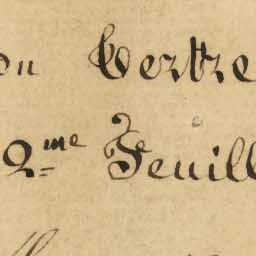 du Tertre
2me Feuill